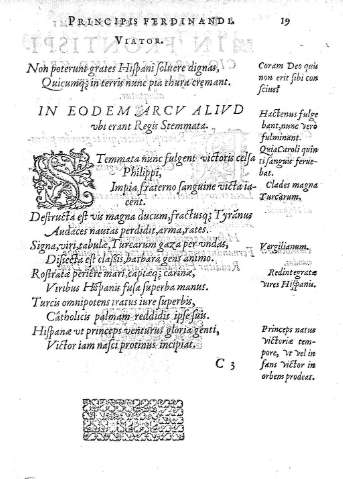 PRINCIPIS FERDINANDI. 19
VIATOR.
Non poterunt grates Hispani soluere dignas,
Quicumq; in terris nunc pia thura cremant.
Coram Deo quis
non erit sibi con
scius?
IN EODEM ARCV ALIVD
vbi erant Regis Stemmata.
STemmata nunc fulgent victoris celsa
Philippi,
Impia fraterno sanguine victa ia-
cent.
Destructa est vis magna ducum, fractusq; Tyrānus
Audaces nautas perdidit, arma, rates.
Signa, viri, tabulæ, Turcarum gaza per vndas,
Disiecta est classis, barbara gens animo.
Rostratæ periere mari, captæq; carinæ,
Viribus Hispanis fusa superba manus.
Turcis omnipotens iratus iure superbis,
Catholicis palmam reddidit ipse suis.
Hispanæ vt princeps venturus gloria genti,
Victor iam nasci protinus incipiat.
Hactenus fulge
bant, nunc vero
fulminant.
Quia Caroli quin
ti sanguis ferue-
bat.
Clades magna
Turcarum.
Vergilianum.
Redintegratæ
vires Hispaniæ.
Princeps natus
victoriæ tem-
pore, vt vel in
fans victor in
orbem prodeat.
C 3